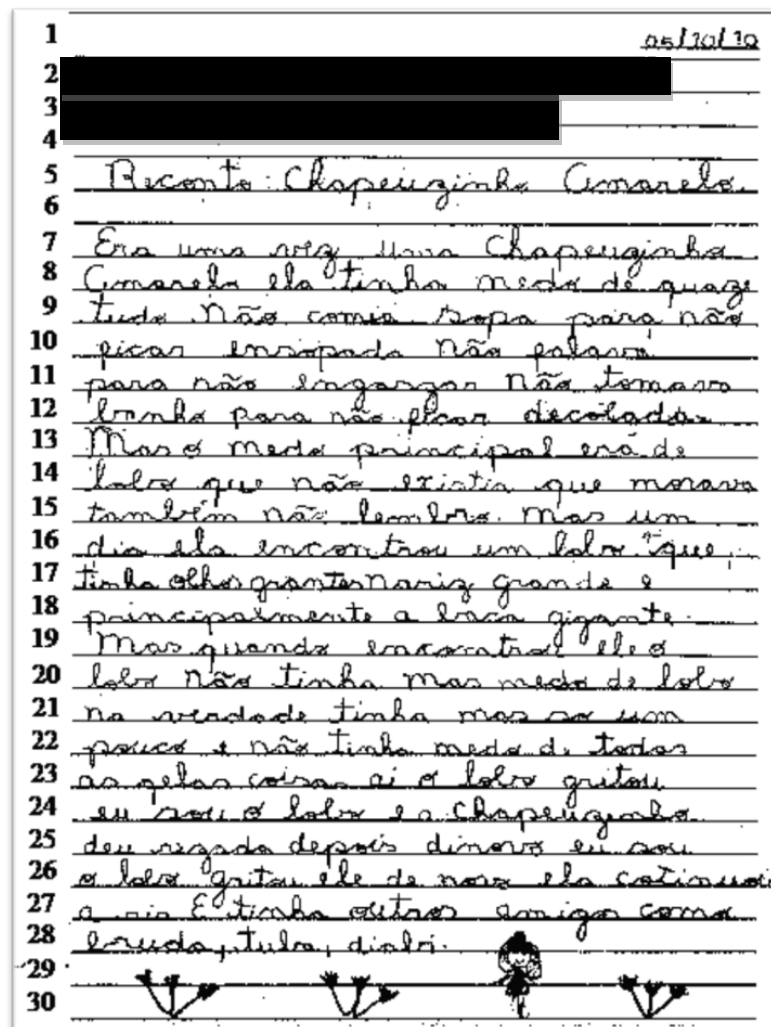 1 05/10/10
2
3
4
5 Reconto: Chapeuzinho Amarelo.
6
7 Era uma vez uma Chapeuzinho
8 Amarela ela tinha medo de quaze
9 tudo Não comia sopa para não
10 ficar ensopada Não falava
11 para não engasgar Não tomava
12 banho para não ficar decolada.
13 Mas o medo principal era de
14 lobo que não existia que morava
15 também não lembro. Mas um
16 dia ela encontrou um lobo que,
17 tinha olhos grantes Nariz grande e
18 principalmente a boca gigante.
19 Mas quando encontrou ele o
20 lobo Não tinha mas medo de lobo
21 na verdade tinha mas so um
22 pouco e não tinha medo de todas
23 as coisas ai o lobo gritou
24 eu sou o lobo e a Chapeuzinho
25 deu depois dinovo eu sou
26 o lobo gritou ele de novo ela cotinuou
27 a ria E tinha outros amigo como
28 bruda, tuba, diabi.
29
30